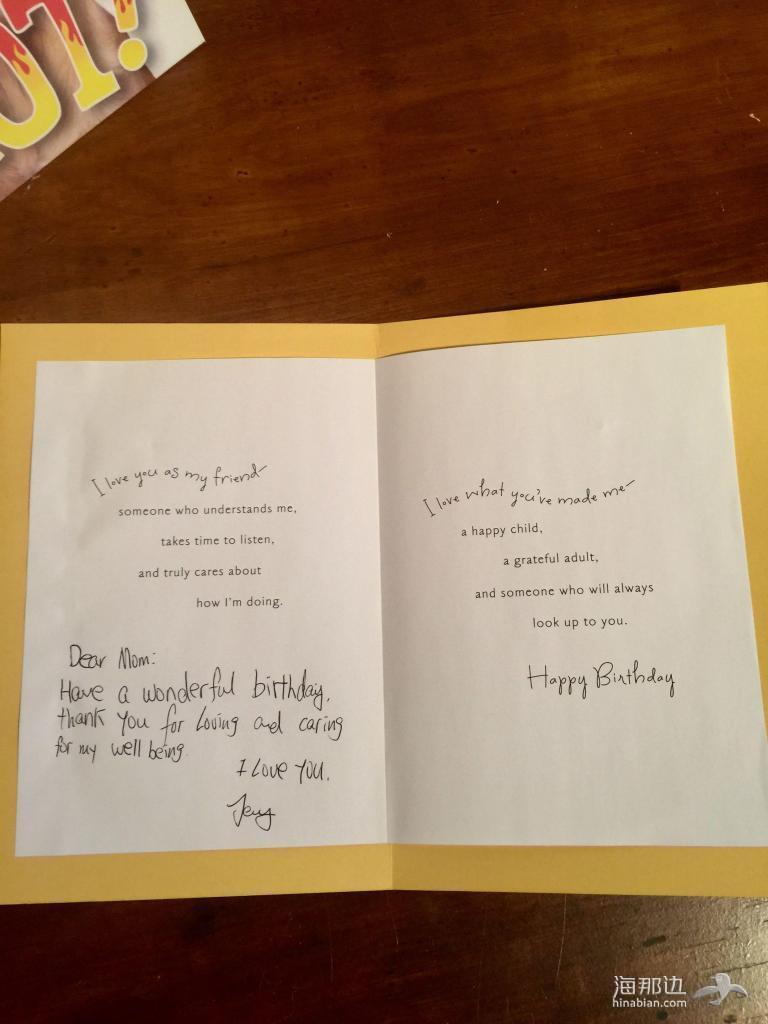 OT!
I love you as my friend–
someone who understands me,
takes time to listen,
and truly cares about
how I'm doing.
Dear Mom:
Have a wonderful birthday,
thank you for loving and caring
for my well being.
I love you.
I love what you've made me–
a happy child,
a grateful adult,
and someone who will always
look up to you.
Happy Birthday
海那边
hinabian.com